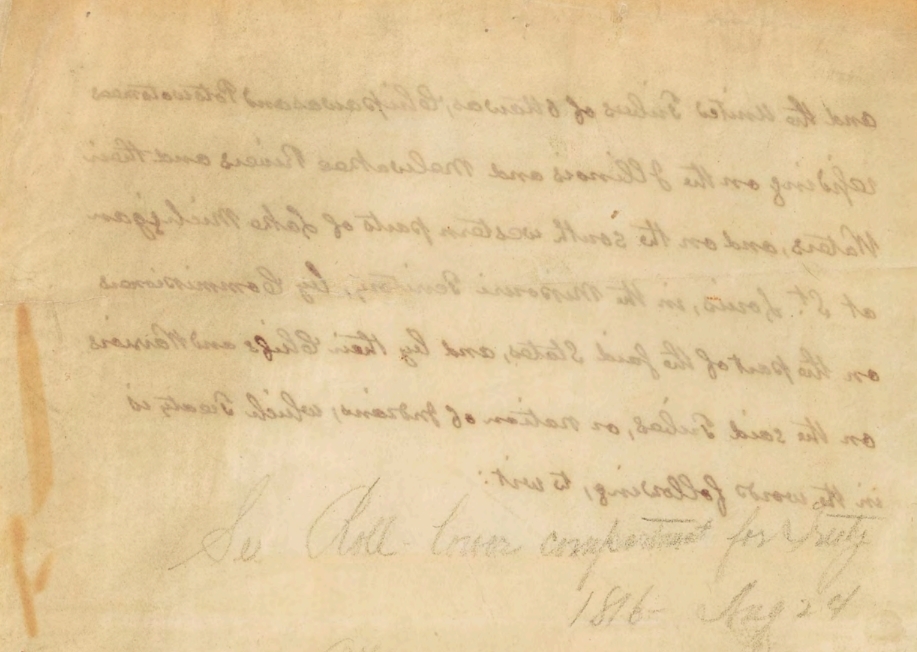 and the United Tribes of Ottawas, Chipawas and Potowotomees
residing on the Illinois and Melwakee Rivers and their
Waters, and on the south western parts of Lake Michigan
at St. Louis, in the Missouri Territory, by Commissioners
on the part of the said States, and by their Chiefs and Warriors
on the said Tribes, or nation of Indians; which Treaty is
in the words following, to wit:
See Roll - lower compartment for Treaty
1816 - Aug 24